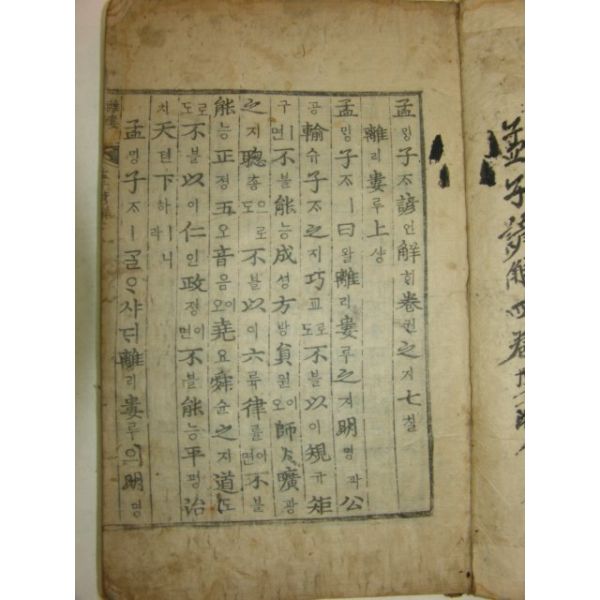 孟子諺解四卷
孟ᄆᆡᆼ子ᄌᆞ諺언解ᄒᆡ卷권之지七칠
離리婁루上샹
孟ᄆᆡᆼ子ᄌᆞㅣ曰왈離리婁루之지明명과公
공輸슈子ᄌᆞ之지巧교로도不불以이規규矩
구ㅣ면不불能능成셩方방員원이오師ᄉᆞ曠광
之지聰총으로도不불以이六륙律률이면不불
能능正졍五오音음이오堯요舜슌之지道도
로도不불以이仁인政졍이면不불能능平평治
치天텬下하ㅣ니라
孟ᄆᆡᆼ子ᄌᆞㅣᄀᆞᆯᄋᆞ샤ᄃᆡ離리婁루의明명